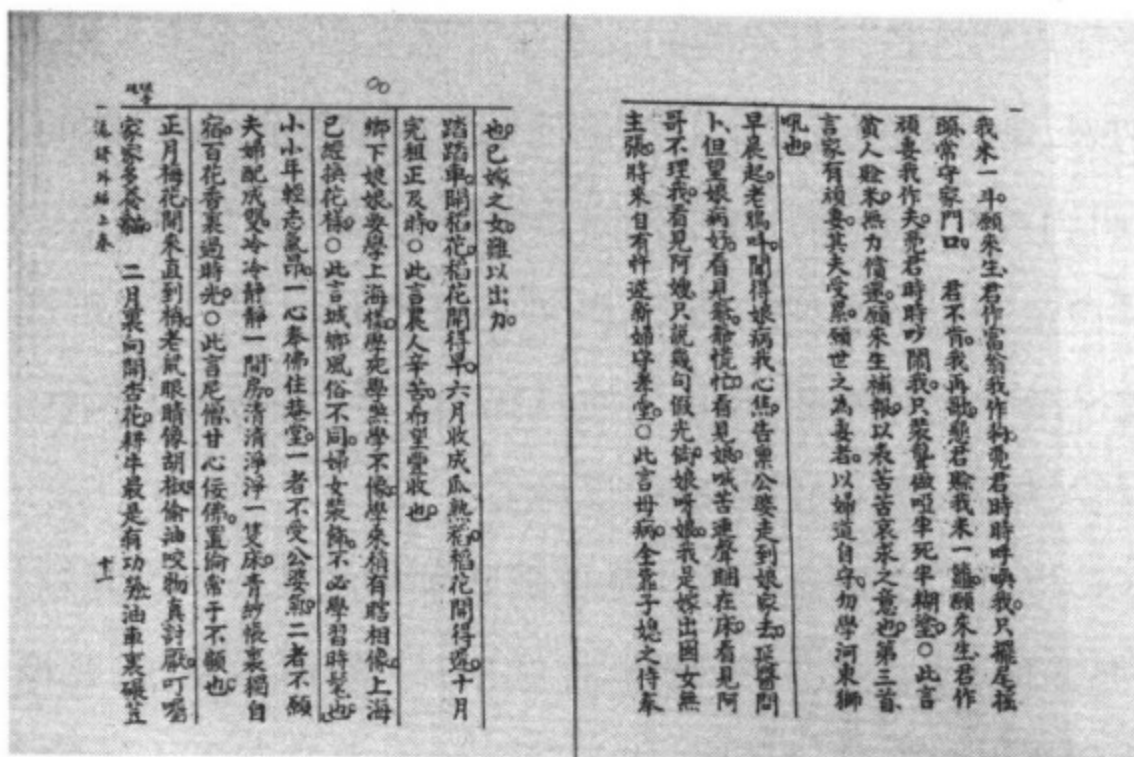 我米一斗。願來生、君作富翁我作狗。竟君時時呼喚我。只擺尾搖
頭、常守家門口。　君不肯。我再懇。懇君賒我米一籮。願來生、君作
頑妻我作夫。竟君時時吵鬧我。只裝聾做啞牢死牢糊塗。○此言
貧人賒米。無力償還。願來生補報。以表苦苦哀求之意也。第三首、
言家有頑妻。其夫受累。願世之為妻者。以婦道自守。勿學河東獅
吼也。
早晨起。老鴉叫。聞得娘病我心焦。告禀公婆走到娘家去。延醫問
卜、但望娘病好。看見爺爺慌忙。看見娘、喊苦連聲睏在床。看見阿
哥不理我。看見阿嫂、只說幾句假光倘。娘呀娘。我是嫁出囡女無
主張。將來自有新婦守孝堂。○此言母病、全靠子媳之侍奉
也。已嫁之女。難以出力。
踏踏車。開稻花。稻花開得早。六月收成瓜熟。稻花開得遲。十月
完租正及時。○此言農人辛苦。希望豐收也。
鄉下娘娘要學上海樣。學死學煞學不像。學來稍有瞎相像。上海
已經換花樣。○此言城鄉風俗不同。婦女裝飾。不必學習時髦也。
小小年輕志氣昂。一心奉佛住菴堂。一者不受公婆氣。二者不願
夫婦配成雙。冷冷靜靜一間房。清清淨淨一隻床。青紗帳裏獨自
宿。百花香裏過時光。○此言尼僧甘心佞佛。置倫常于不顧也。
正月梅花開來直到梢。老鼠眼睛像胡椒。偷油咬物真討厭。叮囑
家家多養貓。　二月裏向開杏花。耕牛最是有功勞。油車裏碾荳
外編上卷
十一